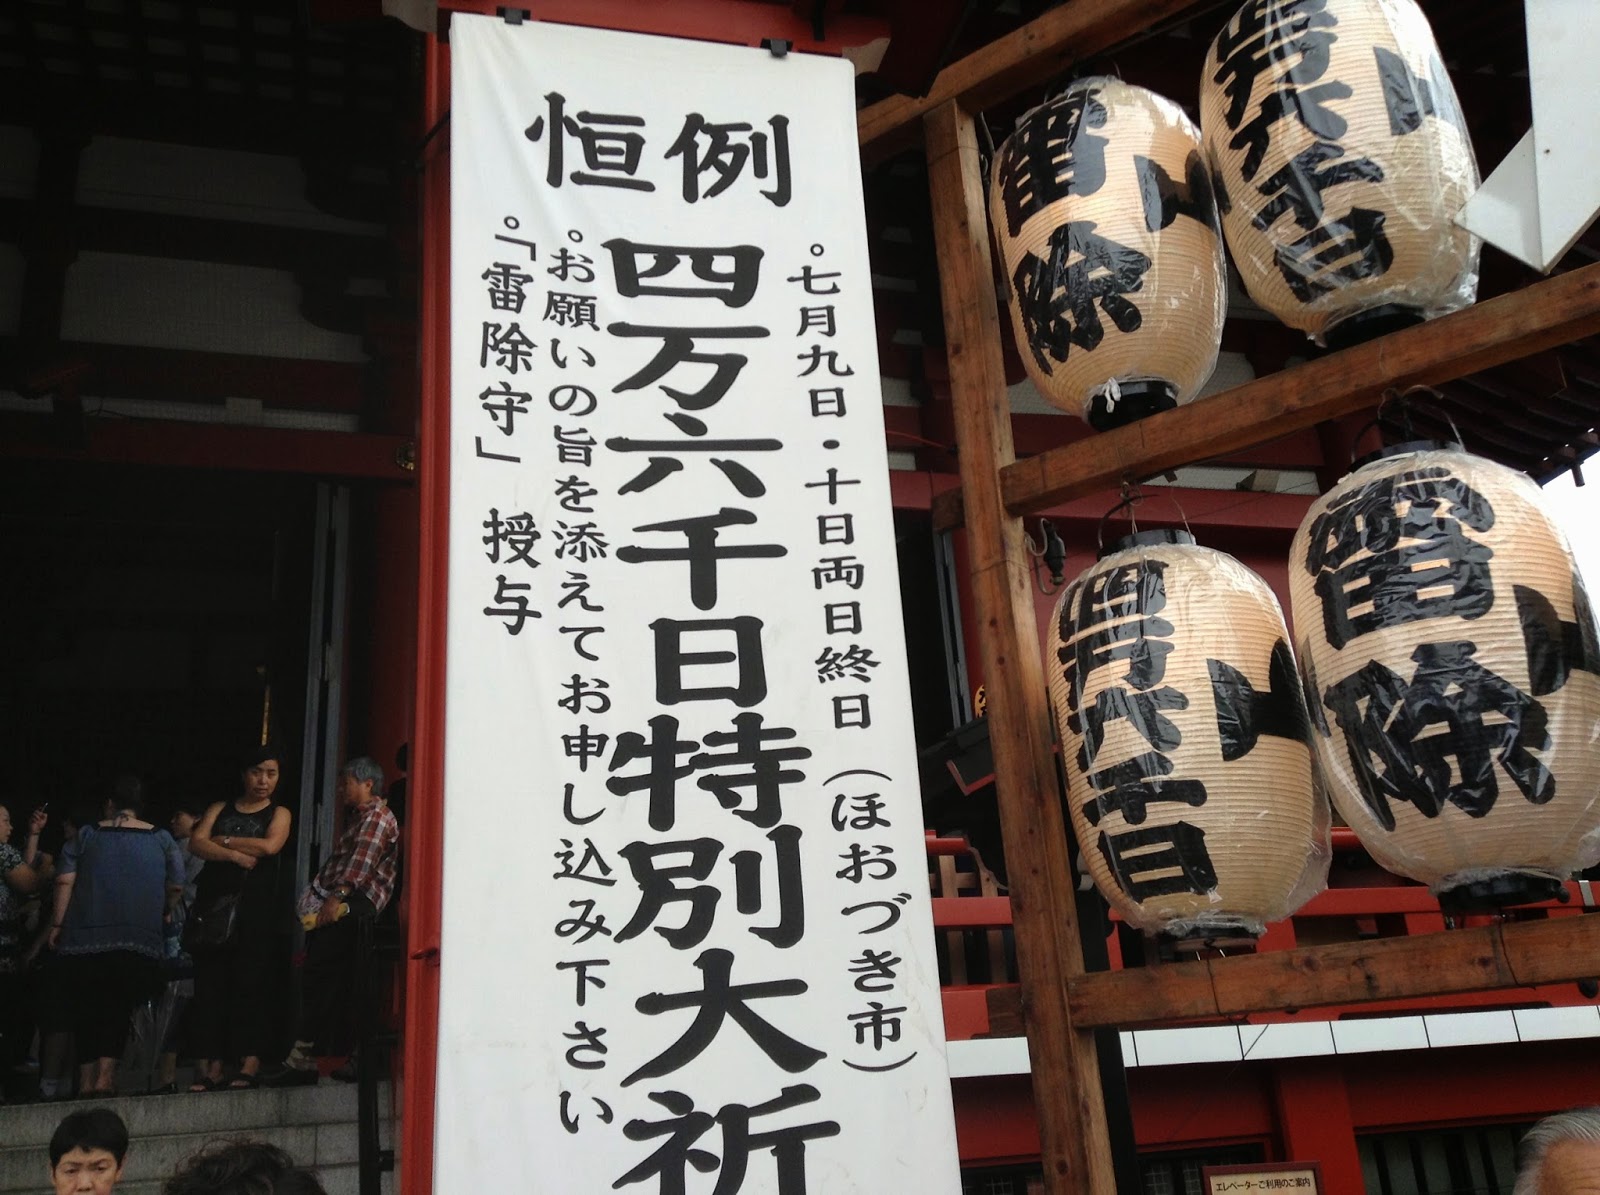 恒例
。七月九日・十日両日終日(ほおづき市)
四万六千日特別大祈
。お願いの旨を添えてお申し込み下さい
。「雷除守」授与
雷除
四万六千日
四万六千日
雷除
エレベーターご利用のご案内